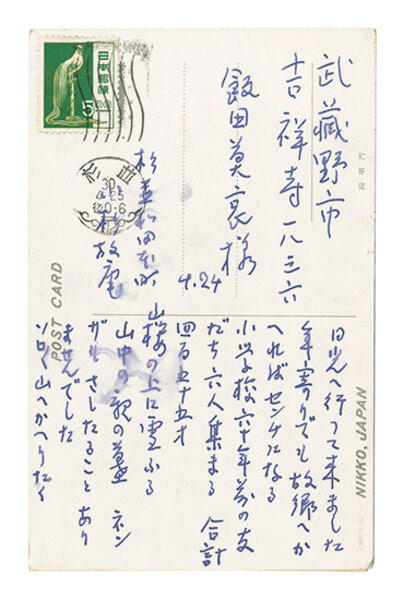 武藏野市
吉祥寺一八三六
飯田莫哀様
4.24
杉並和田本町
小杉放庵
日本郵便
500
杉並
30
4.25
0-6
POST CARD
NIKKO, JAPAN
日光へ行って来ました
年寄りでも故郷へか
へればセンチになる
小学校六十年前の友
だち六人集まる 合計
四百五十五才
山桜の上に雪ふる
山中の ネン
さしたることあり
ませんでした
山へかへりたく